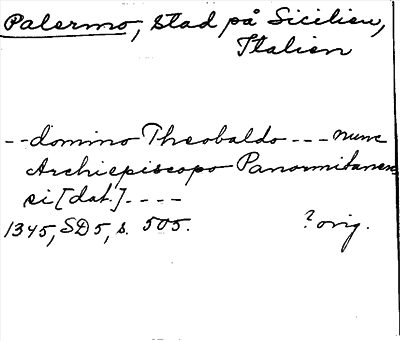 Palermo, stad på Sicilien,
Italien
--domino Theobaldo --- nunc
Archiepiscopo Panormitanen
si [dat.] ----
1345, SD5, s. 505. ? orig.